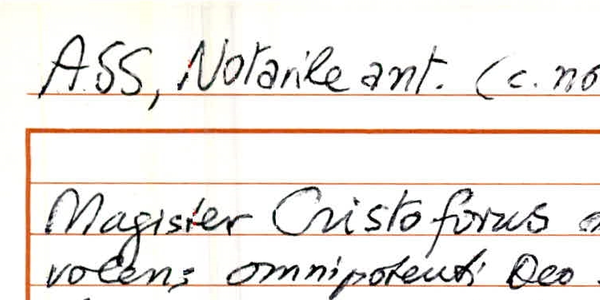 ASS, Notarile ant. (c. no
Magister Cristoforus
volens omnipotenti Deo